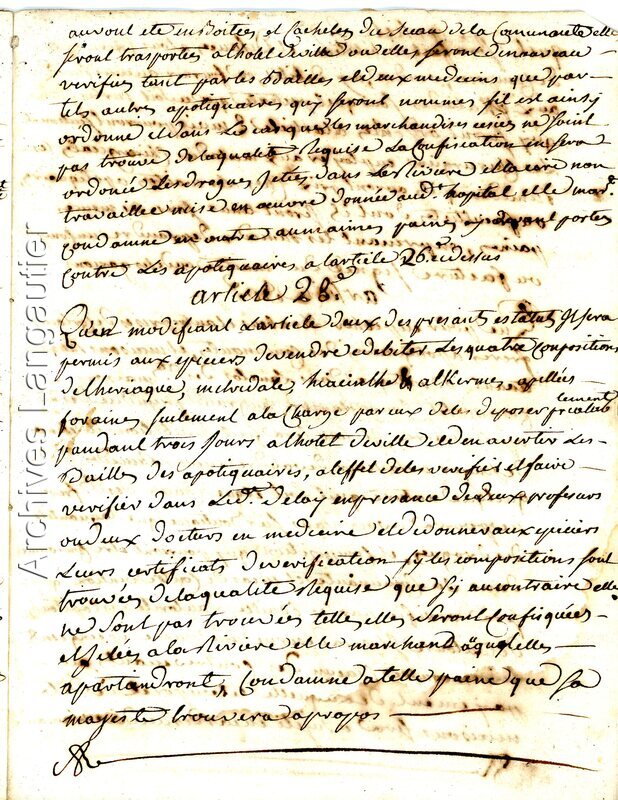 auront ete enboitées et Cachetés du sceau de la Comunauté elle
seront trasportés a lhotel deville ou elles seront denouveau
verifiés tant par les Bailles et deux medecins que par
tels autres apotiquaires quy seront nommes sil est ainsy
ordonné et dans Le cas que les marchandises ne soint
pas trouvé dela qualité Requise La Confiscation en sera
ordonée Les drogues Jetées dans La Riviere et la cire non
travaillée mise en œuvre donnée aud.t hopital et le mar.d
Condamné en outre aux mêmes paines portes
Contre Les apotiquaires a larticle 26.e cidessus
article 28.e
Quen modifiant Larticle deux des presants estatuts Il sera
permis aux epiciers de vendre edebiter Les quatre Compositions
de theriaque, metridate, hiacinthe & alKermes, apellés
foraines seulement a la Charge par eux de les deposer prealab
lement
pandant trois Jours a lhotel deville et den avertir Les
Bailles des apotiquaires, a leffet de les verifier et faire
verifier dans Led. Delay en presance de deux profesurs
ou deux docteurs en medecine et de donner aux epiciers
Leurs certificats de verification sy les compositions sont
trouvées dela qualité Requise que sy au contraire elle
ne sont pas trouvées telles elles seront Confisquées
et Jetées a la Riviere et le marchand a quy elles
apartandront, Condamne a telle paine que sa
majesté trouvera apropos
Archives Langautier